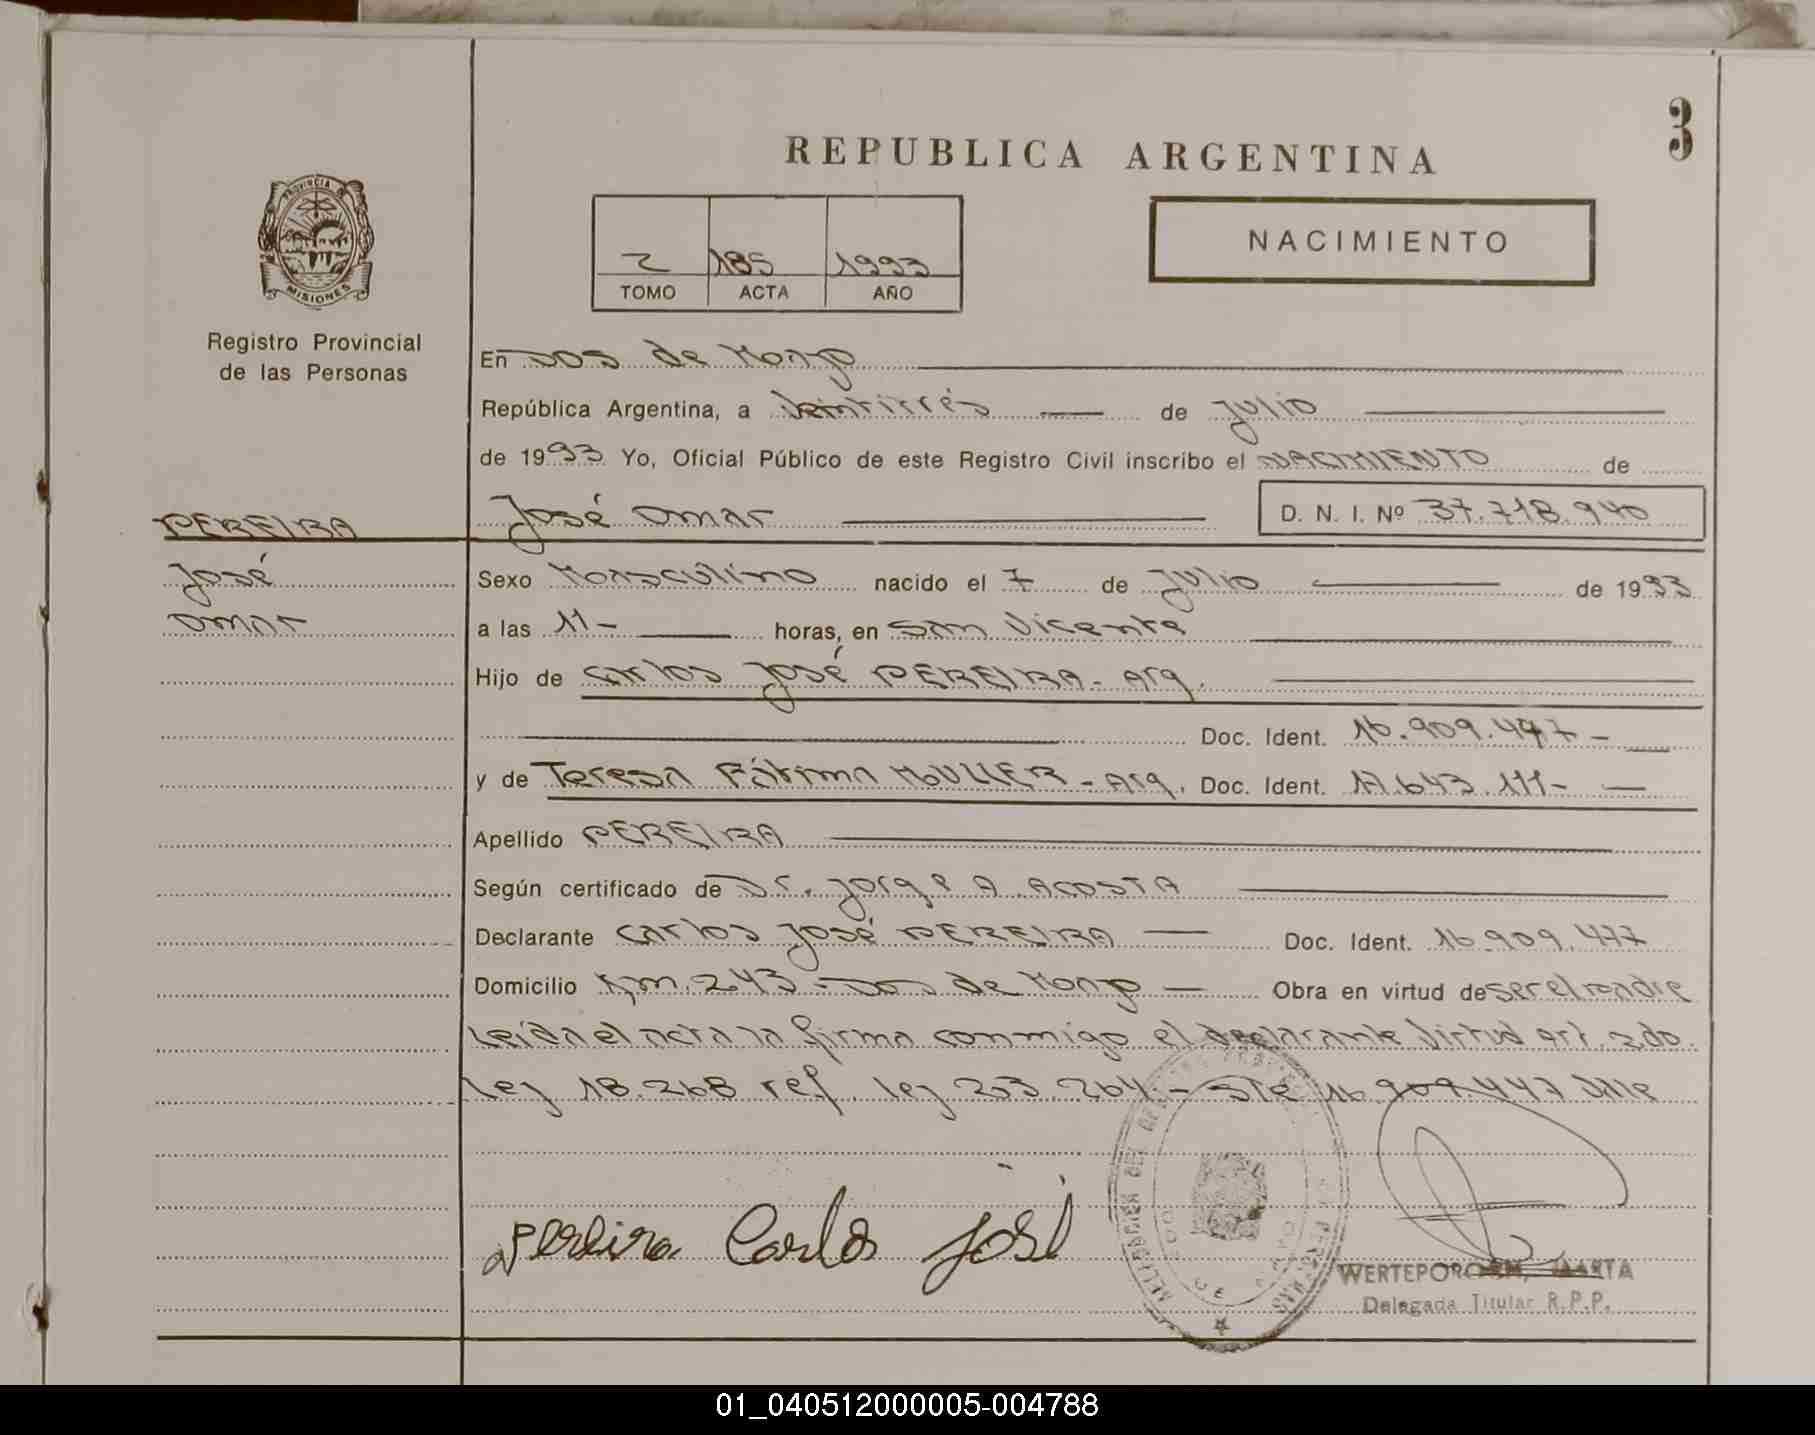 3
REPUBLICA ARGENTINA
PROVINCIA DE
MISIONES
Registro Provincial
de las Personas
NACIMIENTO
2 185 1993
TOMO ACTA AÑO
En Dos de Mayo
República Argentina, a veintitrés de Julio
de 1993 Yo, Oficial Público de este Registro Civil inscribo el NACIMIENTO de
PEREIRA
José Omar
D. N. I. Nº 37.718.940
José
Omar
Sexo Masculino nacido el 7 de Julio de 1993
a las 11- horas, en San Vicente
Hijo de Carlos José PEREIRA- Arg.
Doc. Ident. 16.909.477-
y de Teresa Fátima MULLER- Arg. Doc. Ident. 17.643.111-
Apellido PEREIRA
Según certificado de Dr. Jorge A. ACOSTA
Declarante Carlos José PEREIRA Doc. Ident. 16.909.477
Domicilio Km. 243 - Dos de Mayo Obra en virtud de ser el padre
Leída el acta la firma conmigo el declarante virtud art. 2do.
ley 18.268 ref. ley 23.264- 16.909.447 Vale
Pereira Carlos José
WERTEPOROCH, MARTA
Delegada Titular R.P.P.
01_040512000005-004788